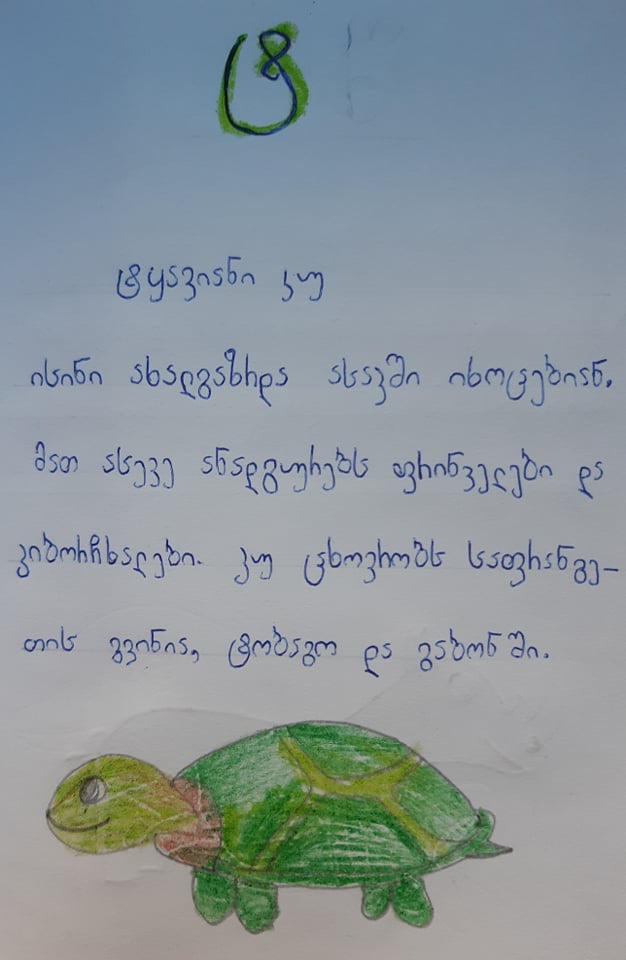 ტ
ტყავიანი კუ
ისინი ახალგაზრდა ასაკში იხოცებიან.
მათ ასევე ანადგურებს ფრინველები და
კიბორჩხალები. კუ ცხოვრობს საფრანგე-
თის გვინია, ტობაგო და გაბონში.